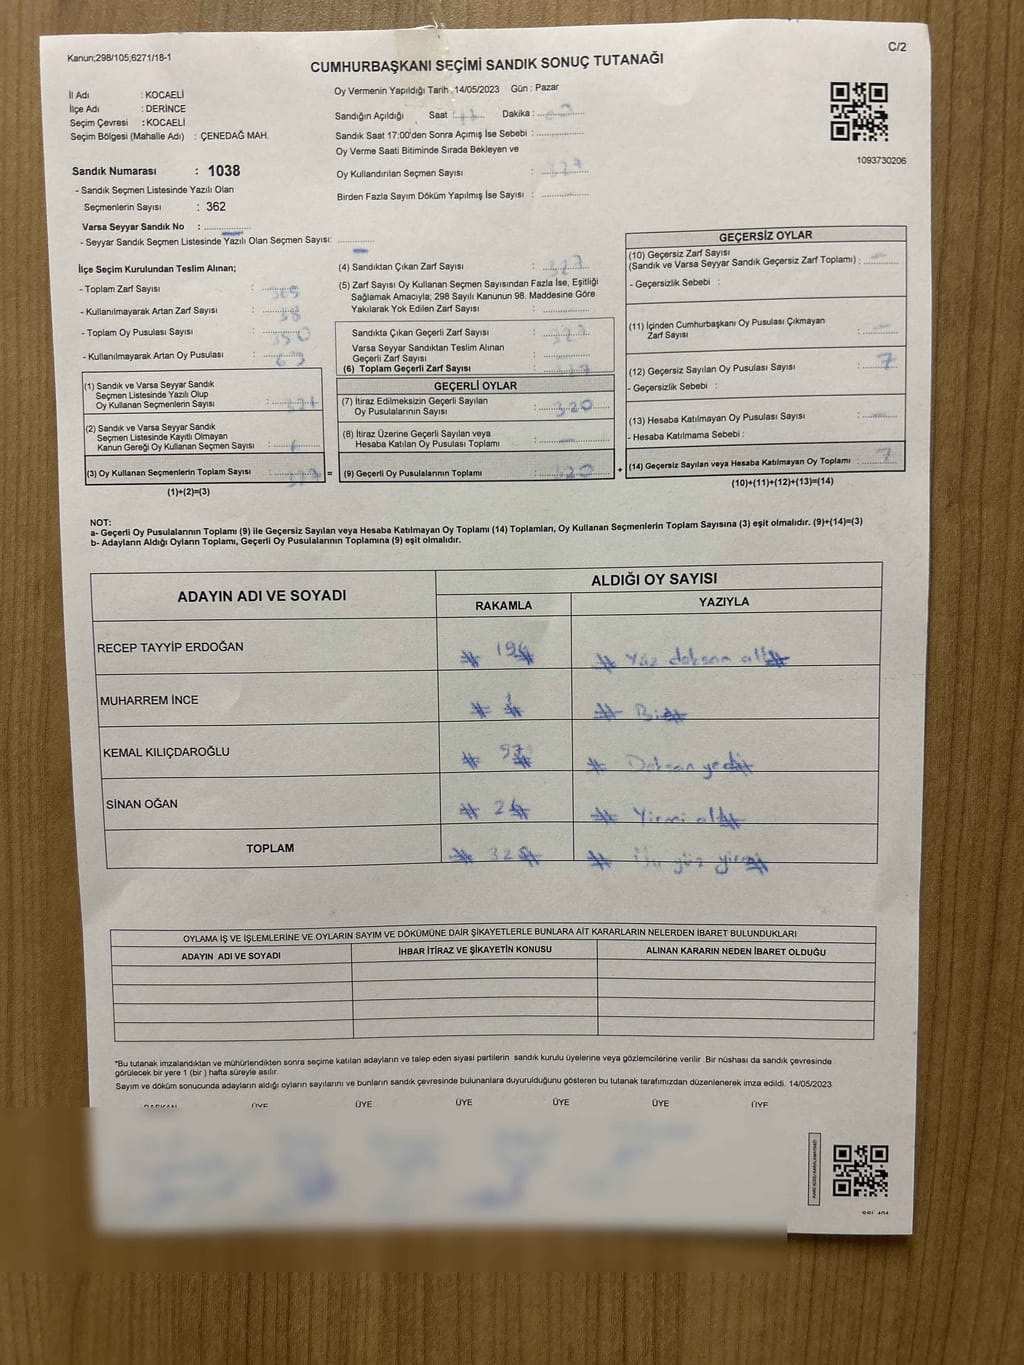 Kanun;298/105;6271/18-1
C/2
CUMHURBAŞKANI SEÇİMİ SANDIK SONUÇ TUTANAĞI
İl Adı : KOCAELİ
İlçe Adı : DERİNCE
Seçim Çevresi : KOCAELİ
Seçim Bölgesi (Mahalle Adı) : ÇENEDAĞ MAH.
Sandık Numarası : 1038
- Sandık Seçmen Listesinde Yazılı Olan
Seçmenlerin Sayısı : 362
Varsa Seyyar Sandık No :
- Seyyar Sandık Seçmen Listesinde Yazılı Olan Seçmen Sayısı:
Oy Vermenin Yapıldığı Tarih :14/05/2023 Gün : Pazar
Sandığın Açıldığı Saat : Dakika :
Sandık Saat 17:00'den Sonra Açımış İse Sebebi :
Oy Verme Saati Bitiminde Sırada Bekleyen ve
Oy Kullandırılan Seçmen Sayısı : 327
Birden Fazla Sayım Döküm Yapılmış İse Sayısı :
1093730206
İlçe Seçim Kurulundan Teslim Alınan;
- Toplam Zarf Sayısı : 365
- Kullanılmayarak Artan Zarf Sayısı : 38
- Toplam Oy Pusulası Sayısı :
- Kullanılmayarak Artan Oy Pusulası : 63
(1) Sandık ve Varsa Seyyar Sandık
Seçmen Listesinde Yazılı Olup
Oy Kullanan Seçmenlerin Sayısı : 321
(2) Sandık ve Varsa Seyyar Sandık
Seçmen Listesinde Kayıtlı Olmayan
Kanun Gereği Oy Kullanan Seçmen Sayısı : 6
(3) Oy Kullanan Seçmenlerin Toplam Sayısı : 327 =
(1)+(2)=(3)
(4) Sandıktan Çıkan Zarf Sayısı : 327
(5) Zarf Sayısı Oy Kullanan Seçmen Sayısından Fazla İse, Eşitliği
Sağlamak Amacıyla; 298 Sayılı Kanunun 98. Maddesine Göre
Yakılarak Yok Edilen Zarf Sayısı :
Sandıkta Çıkan Geçerli Zarf Sayısı : 327
Varsa Seyyar Sandıktan Teslim Alınan
Geçerli Zarf Sayısı :
(6) Toplam Geçerli Zarf Sayısı : 327
GEÇERLİ OYLAR
(7) İtiraz Edilmeksizin Geçerli Sayılan
Oy Pusulalarının Sayısı : 320
(8) İtiraz Üzerine Geçerli Sayılan veya
Hesaba Katılan Oy Pusulası Toplamı : —
(9) Geçerli Oy Pusulalarının Toplamı : 320 +
GEÇERSİZ OYLAR
(10) Geçersiz Zarf Sayısı
(Sandık ve Varsa Seyyar Sandık Geçersiz Zarf Toplamı) : —
- Geçersizlik Sebebi :
(11) İçinden Cumhurbaşkanı Oy Pusulası Çıkmayan
Zarf Sayısı : —
(12) Geçersiz Sayılan Oy Pusulası Sayısı : 7
- Geçersizlik Sebebi :
(13) Hesaba Katılmayan Oy Pusulası Sayısı : —
- Hesaba Katılmama Sebebi :
(14) Geçersiz Sayılan veya Hesaba Katılmayan Oy Toplamı : 7
(10)+(11)+(12)+(13)=(14)
NOT:
a- Geçerli Oy Pusulalarının Toplamı (9) ile Geçersiz Sayılan veya Hesaba Katılmayan Oy Toplamı (14) Toplamları, Oy Kullanan Seçmenlerin Toplam Sayısına (3) eşit olmalıdır. (9)+(14)=(3)
b- Adayların Aldığı Oyların Toplamı, Geçerli Oy Pusulalarının Toplamına (9) eşit olmalıdır.
ADAYIN ADI VE SOYADI
ALDIĞI OY SAYISI
RAKAMLA YAZIYLA
RECEP TAYYİP ERDOĞAN # 196 # # Yüz doksan altı #
MUHARREM İNCE # 1 # # Bir #
KEMAL KILIÇDAROĞLU # 97 # # Doksan yedi #
SİNAN OĞAN # 26 # # Yirmi altı #
TOPLAM # 320 # # üç yüz yirmi #
OYLAMA İŞ VE İŞLEMLERİNE VE OYLARIN SAYIM VE DÖKÜMÜNE DAİR ŞİKAYETLERLE BUNLARA AİT KARARLARIN NELERDEN İBARET BULUNDUKLARI
ADAYIN ADI VE SOYADI İHBAR İTİRAZ VE ŞİKAYETİN KONUSU ALINAN KARARIN NEDEN İBARET OLDUĞU
*Bu tutanak imzalandıktan ve mühürlendikten sonra seçime katılan adayların ve talep eden siyasi partilerin sandık kurulu üyelerine veya gözlemcilerine verilir .Bir nüshası da sandık çevresinde
görülecek bir yere 1 (bir ) hafta süreyle asılır.
Sayım ve döküm sonucunda adayların aldığı oyların sayılarını ve bunların sandık çevresinde bulunanlara duyurulduğunu gösteren bu tutanak tarafımızdan düzenlenerek imza edildi. 14/05/2023
BAŞKAN ÜYE ÜYE ÜYE ÜYE ÜYE ÜYE